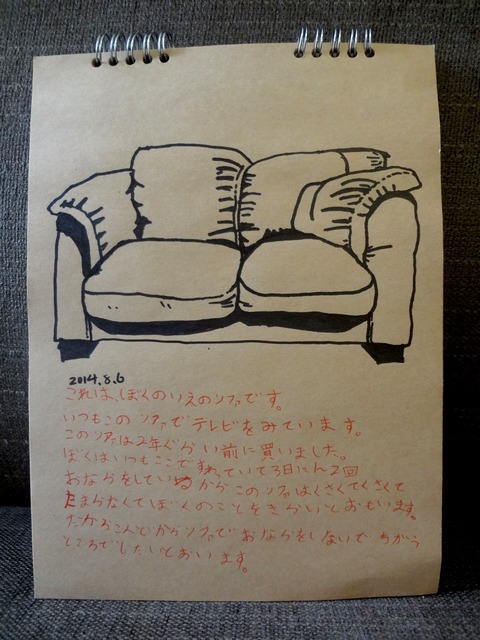 2014.8.6
これは、ぼくのいえのソファです。
いつもこのソファでテレビをみています。
このソファは2年ぐらい前に買いました。
ぼくはいつもここですわっていて3日に2回
おならをしているからこのソファはくさくてくさくて
たまらなくてぼくのことをきらいとおもいます。
だからこんどからソファでおならをしないでちがう
ところでしたいとおいます。